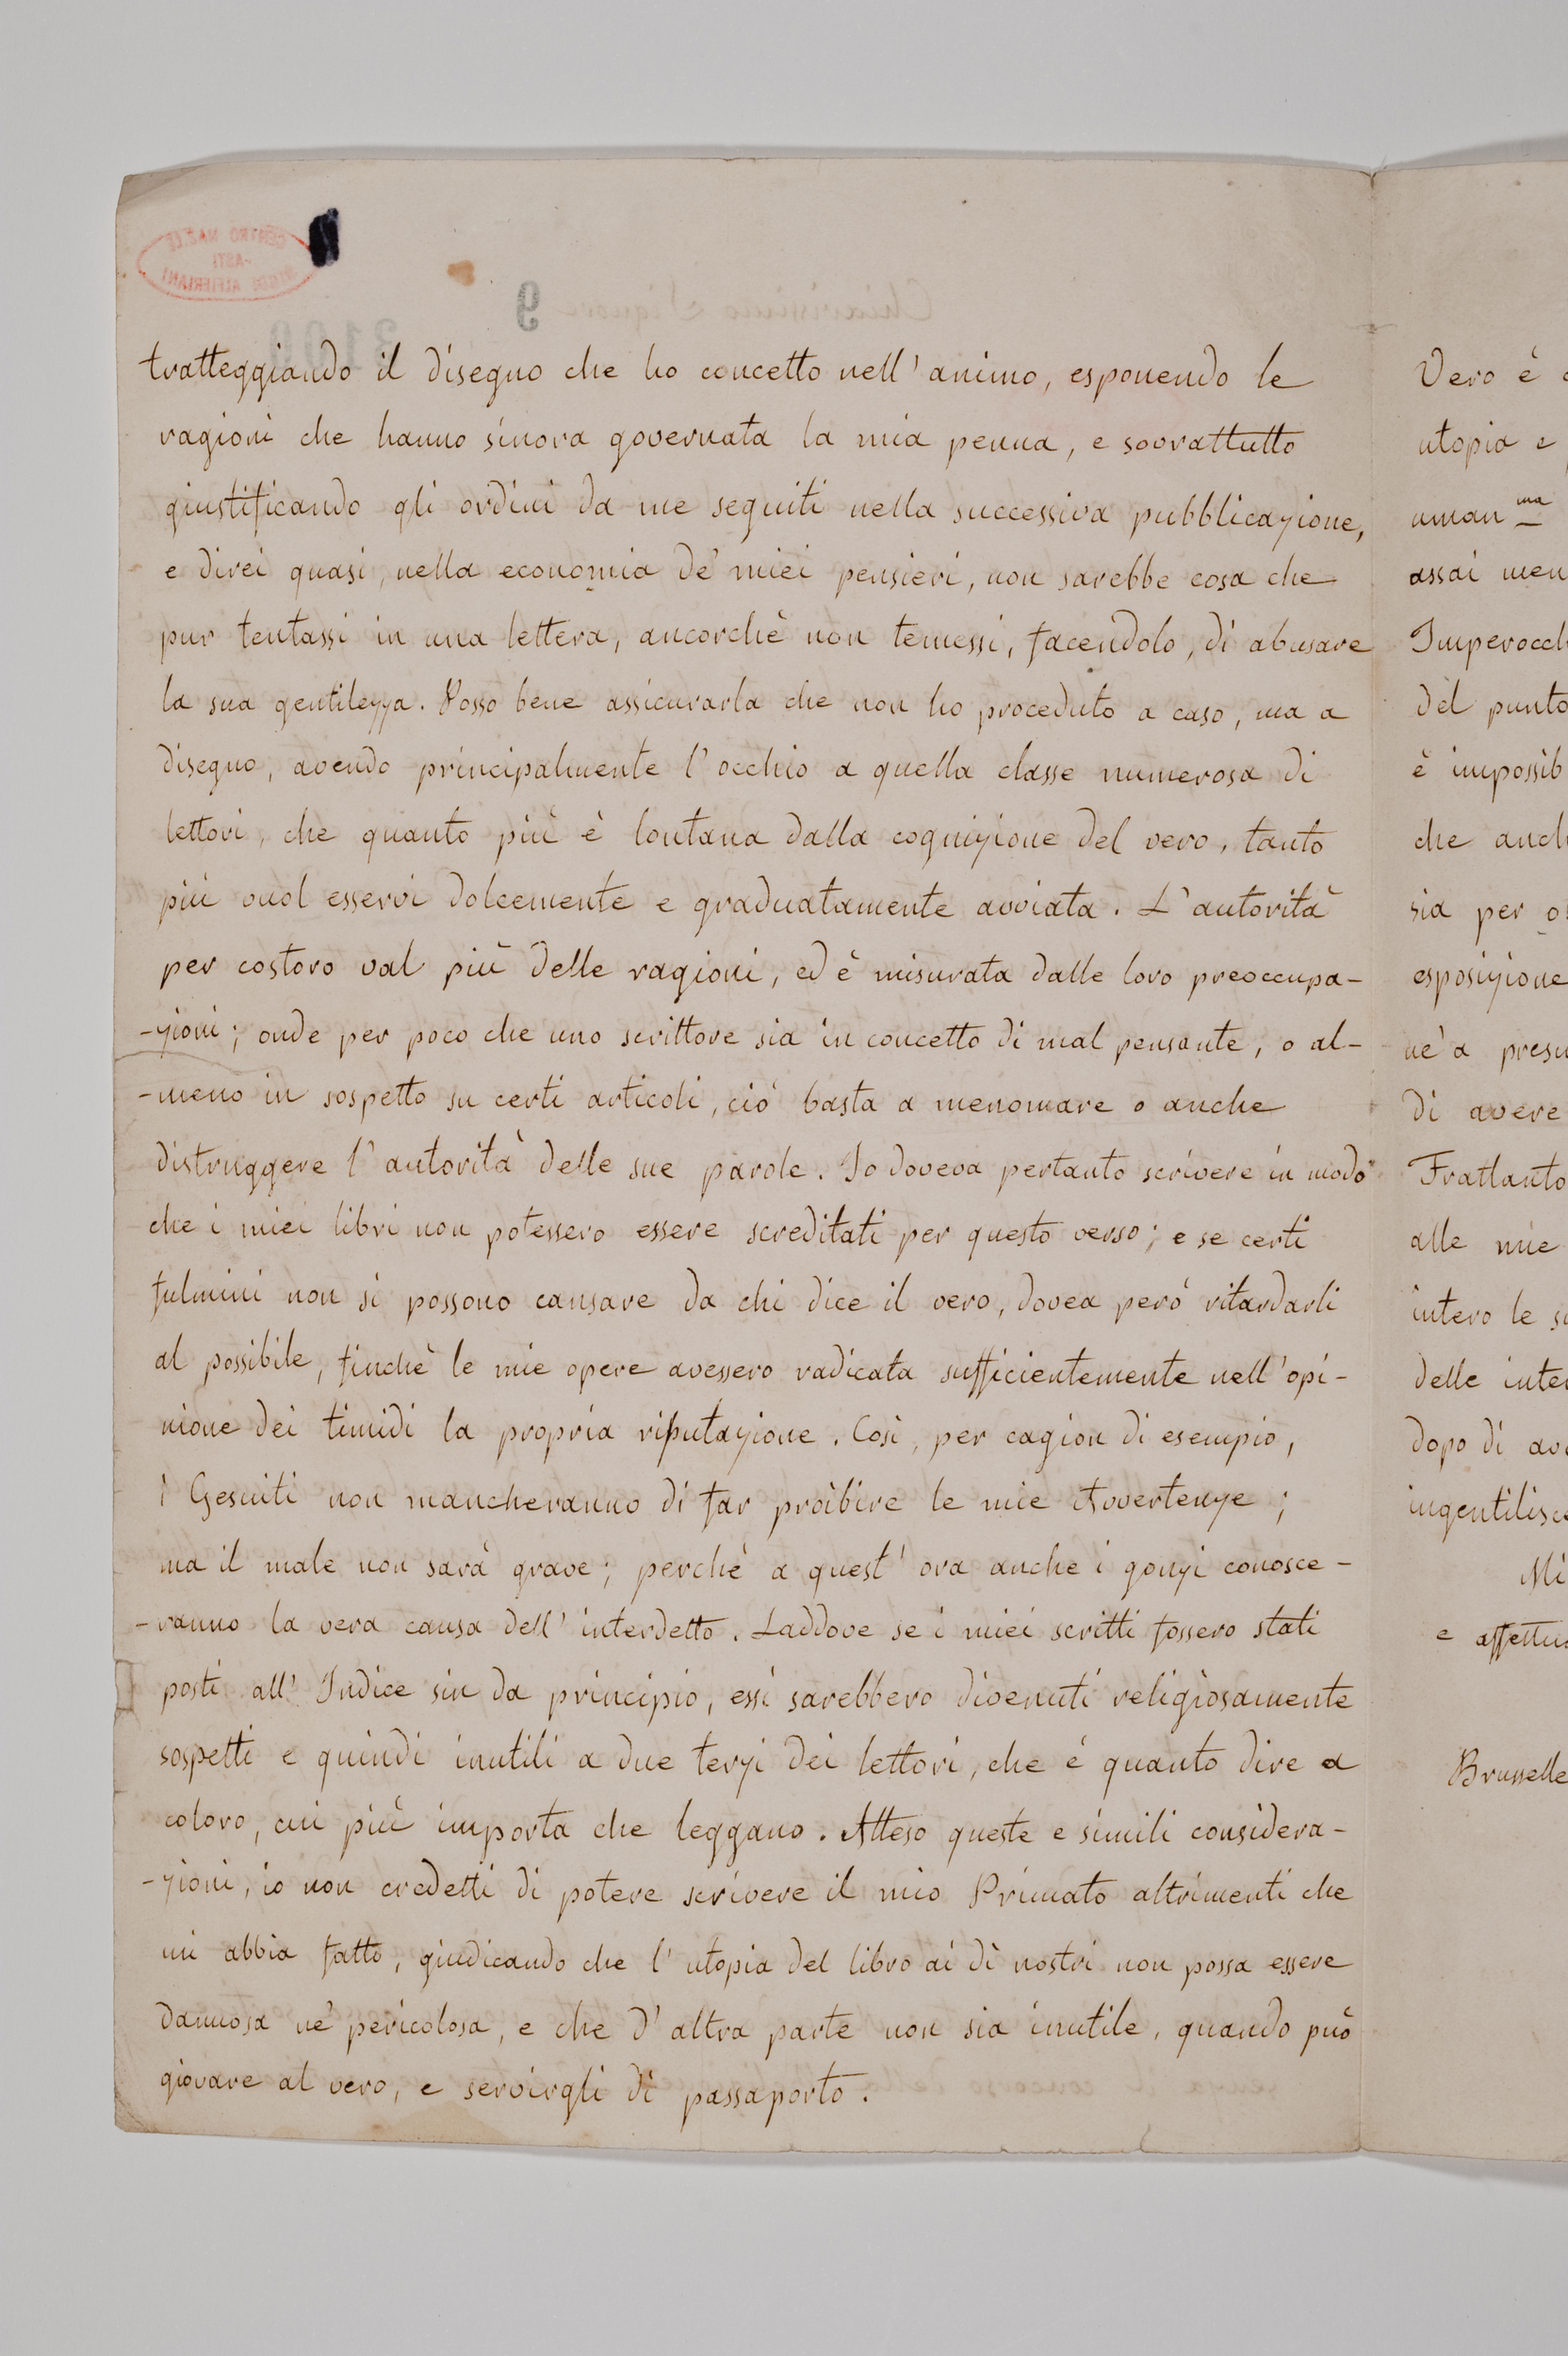 tratteggiando il disegno che ho concetto nell'animo, esponendo le
ragioni che hanno sinora governata la mia penna, e sovrattutto
giustificando gli ordini da me seguiti nella successiva pubblicazione,
e direi quasi, nella economia de' miei pensieri, non sarebbe cosa che
pur tentassi in una lettera, ancorchè non temessi, facendolo, di abusare
la sua gentilezza. Posso bene assicurarla che non ho proceduto a caso, ma a
disegno, avendo principalmente l'occhio a quella classe numerosa di
lettori, che quanto più è lontana dalla cognizione del vero, tanto
più vuol esservi dolcemente e graduatamente avviata. L'autorità
per costoro val più delle ragioni, ed è misurata dalle loro preoccupa-
-zioni; onde per poco che uno scrittore sia in concetto di mal pensante, o al-
-meno in sospetto su certi articoli, ciò basta a menomare o anche
distruggere l'autorità delle sue parole. Io doveva pertanto scrivere in modo
che i miei libri non potessero essere screditati per questo verso; e se certi
fulmini non si possono cansare da chi dice il vero, dovea però ritardarli
al possibile, finchè le mie opere avessero radicata sufficientemente nell'opi-
nione dei timidi la propria riputazione. Così, per cagion di esempio,
i Gesuiti non mancheranno di far proibire le mie Avvertenze;
ma il male non sarà grave; perchè a quest'ora anche i gonzi conosce-
-ranno la vera causa dell'interdetto. Laddove se i miei scritti fossero stati
posti all'Indice sin da principio, essi sarebbero divenuti religiosamente
sospetti e quindi inutili a due terzi dei lettori, che è quanto dire a
coloro, cui più importa che leggano. Atteso queste e simili considera-
-zioni, io non credetti di potere scrivere il mio Primato altrimenti che
mi abbia fatto, giudicando che l'utopia del libro ai dì nostri non possa essere
dannosa nè pericolosa, e che d'altra parte non sia inutile, quando può
giovare al vero, e servirgli di passaporto.
Vero è
utopia e
uman ma
assai men
Imperocch
del punto
è impossib
che anch
sia per
esposizione
nè a presu
di avere
Frattanto
alle mie
intero le
delle inter
dopo di
ingentilisce
Mi
e affettuo
Brusselle